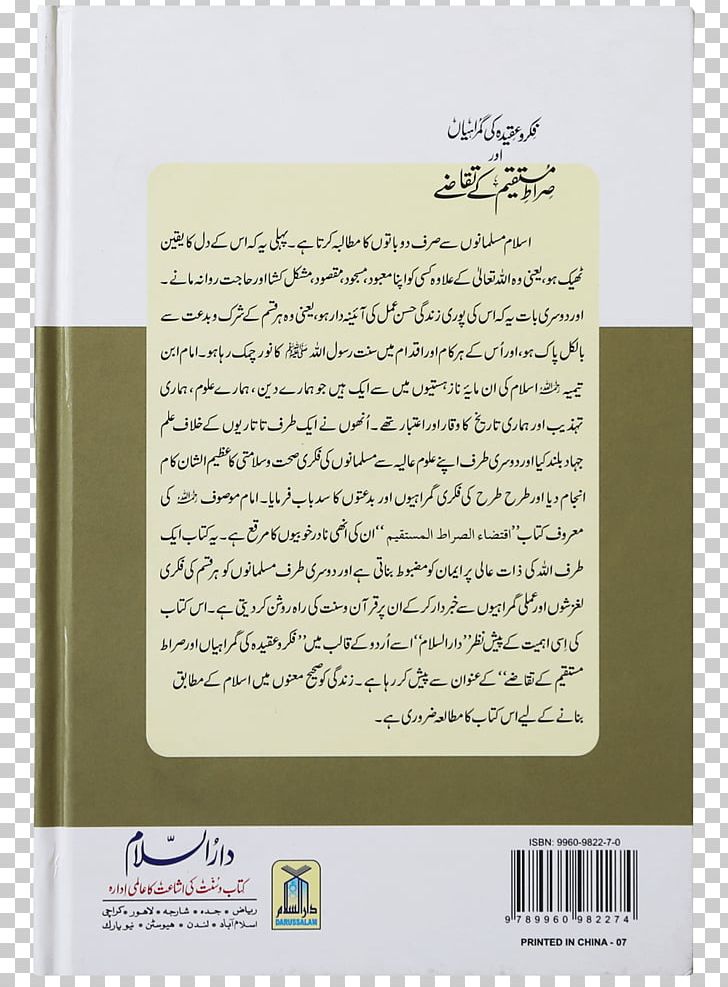 فکر و عقیدہ کی گمراہیاں
اور
صراطِ مستقیم کے تقاضے
اسلام مسلمانوں سے صرف دو باتوں کا مطالبہ کرتا ہے۔ پہلی یہ کہ اس کے دل کا یقین
ٹھیک ہو، یعنی وہ اللہ تعالیٰ کے علاوہ کسی کو اپنا معبود، مسجود، مقصود، مشکل کشا اور حاجت روا نہ مانے۔
اور دوسری بات یہ کہ اس کی پوری زندگی حسن عمل کی آئینہ دار ہو، یعنی وہ ہر قسم کے شرک و بدعت سے
بالکل پاک ہو، اور اُس کے ہر کام اور اقدام میں سنت رسول اللہ ﷺ کا نور چمک رہا ہو۔ امام ابن
تیمیہ رحمہ اللہ اسلام کی ان مایۂ ناز ہستیوں میں سے ایک ہیں جو ہمارے دین، ہمارے علوم، ہماری
تہذیب اور ہماری تاریخ کا وقار اور اعتبار تھے۔ اُنھوں نے ایک طرف تاتاریوں کے خلاف علم
جہاد بلند کیا اور دوسری طرف اپنے علوم عالیہ سے مسلمانوں کی فکری صحت و سلامتی کا عظیم الشان کام
انجام دیا اور طرح طرح کی فکری گمراہیوں اور بدعتوں کا سد باب فرمایا۔ امام موصوف رحمہ اللہ کی
معروف کتاب ’’اقتضاء الصراط المستقیم‘‘ ان کی انھی نادر خوبیوں کا مرقع ہے۔ یہ کتاب ایک
طرف اللہ کی ذات عالی پر ایمان کو مضبوط بناتی ہے اور دوسری طرف مسلمانوں کو ہر قسم کی فکری
لغزشوں اور عملی گمراہیوں سے خبردار کر کے ان پر قرآن و سنت کی راہ روشن کر دیتی ہے۔ اس کتاب
کی اِسی اہمیت کے پیش نظر ’’دارالسلام‘‘ اسے اُردو کے قالب میں ’’فکر و عقیدہ کی گمراہیاں اور صراط
مستقیم کے تقاضے‘‘ کے عنوان سے پیش کر رہا ہے۔ زندگی کو صحیح معنوں میں اسلام کے مطابق
بنانے کے لیے اس کتاب کا مطالعہ ضروری ہے۔
دارُالسّلام
کتاب و سنت کی اشاعت کا عالمی ادارہ
ریاض • جدہ • شارجہ • لاہور • کراچی
اسلام آباد • لندن • ہیوسٹن • نیو یارک
دارالسلام
DARUSSALAM
ISBN: 9960-9822-7-0
9 789960 982274
PRINTED IN CHINA - 07